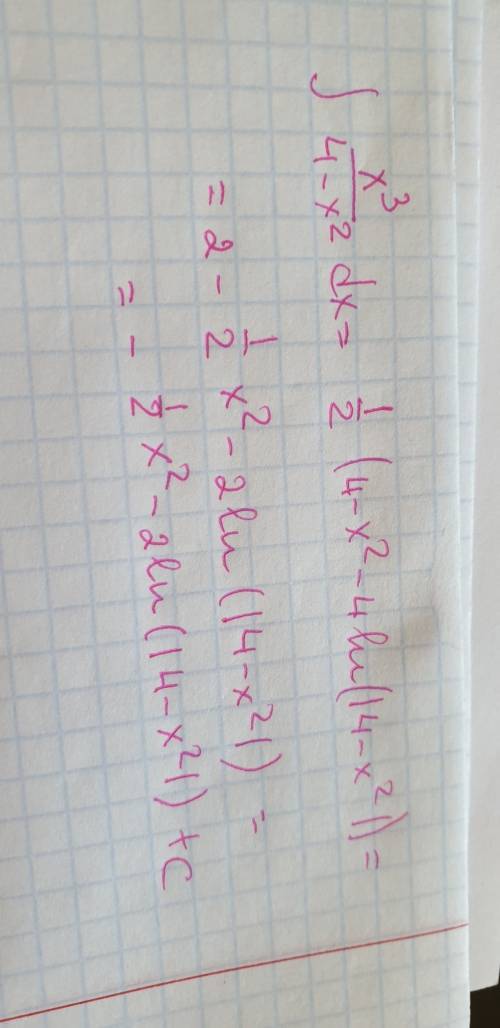 ∫ x³/(4-x²) dx = 1/2 (4-x²-4ln(|4-x²|) =
= 2 - 1/2 x² - 2ln(|4-x²|) =
= - 1/2 x² - 2ln(|4-x²|) + C